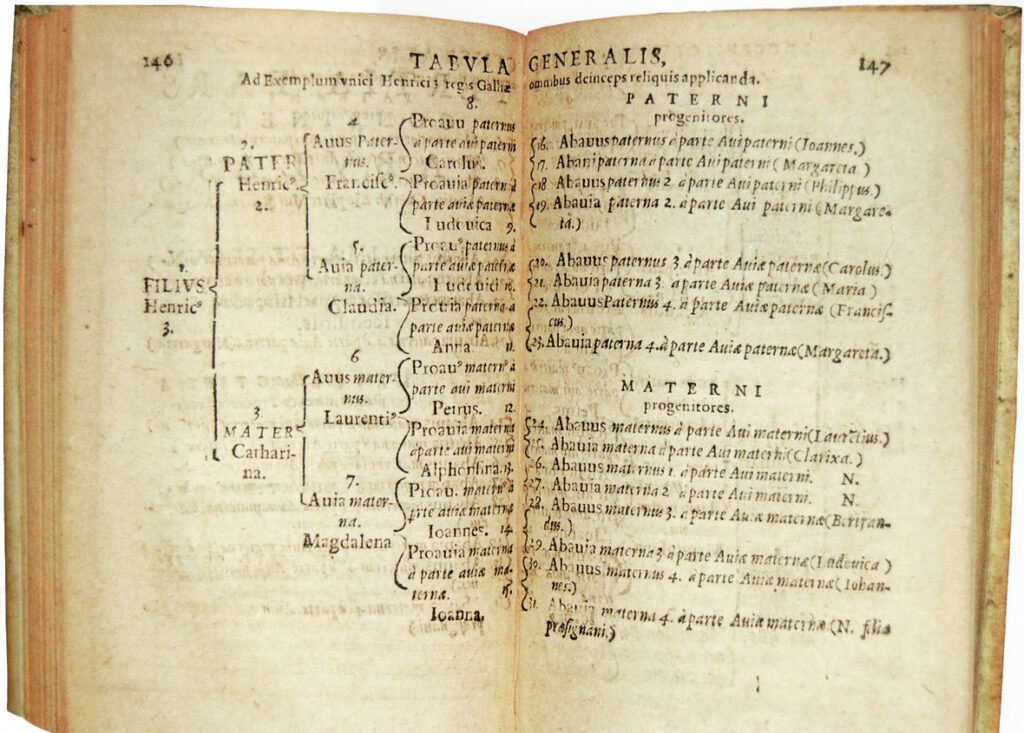 146
TABVLA
Ad Exemplum vnici Henrici 3 regis Galliæ
8.
1.
FILIVS
Henric⁹
3.
2.
PATER
Henric⁹.
2.
3
MATER
Cathari-
na.
4
Auus Pater-
nus.
Francisc⁹.
5.
Auia pater-
na.
Claudia.
6
Auus mater-
nus.
Laurenti⁹
7.
Auia mater-
na.
Magdalena
Proauu paternus
à parte aui paterni
Carolus.
Proauia paterna
parte auiæ paternæ
Ludouica 9.
Proau⁹ paternus à
parte auiæ paternæ
Ludouic⁹ 10.
Proauia paterna à
parte auiæ paternæ
Anna. 11.
Proau⁹ matern⁹ à
parte aui materni
Petrus. 12.
Proauia materna
à parte aui materni
Alphonsina. 13.
Proau. matern⁹ à
parte auiæ maternæ
Ioannes. 14.
Proauia materna
à parte auiæ ma-
ternæ. 15.
Ioanna.
GENERALIS, 147
omnibus deinceps reliquis applicanda.
PATERNI
progenitores.
16. Abauus paternus à parte Aui paterni (Ioannes.)
17. Abani paterna à parte Aui paterni (Margareta.)
18 Abauus paternus 2. à parte Aui paterni (Philippus.)
19. Abauia paterna 2. à parte Aui paterni (Margare-
ta.)
20. Abauus paternus 3. à parte Auiæ paternæ (Carolus.)
21. Abauia paterna 3. à parte Auiæ paternæ (Maria)
22. Abauus Paternus 4. à parte Auiæ paternæ (Francis-
cus.)
23. Abauia paterna 4. à parte Auiæ paternæ (Margareta.)
MATERNI
progenitores.
24. Abauus maternus à parte Aui materni (Laurētius.)
25. Abauia materna à parte Aui materni (Clarixa.)
26. Abauus maternus 1. à parte Aui materni. N.
27. Abauia materna 2 à parte Aui materni. N.
28. Abauus maternus 3. à parte Auiæ maternæ (Bertran-
dus.)
29. Abauia materna 3 à parte Auiæ maternæ (Ludouica)
30. Abauus maternus 4. à parte Auiæ maternæ (Iohan-
nes.)
31. Abauia materna 4. à parte Auiæ maternæ (N. filia
præsignani.)